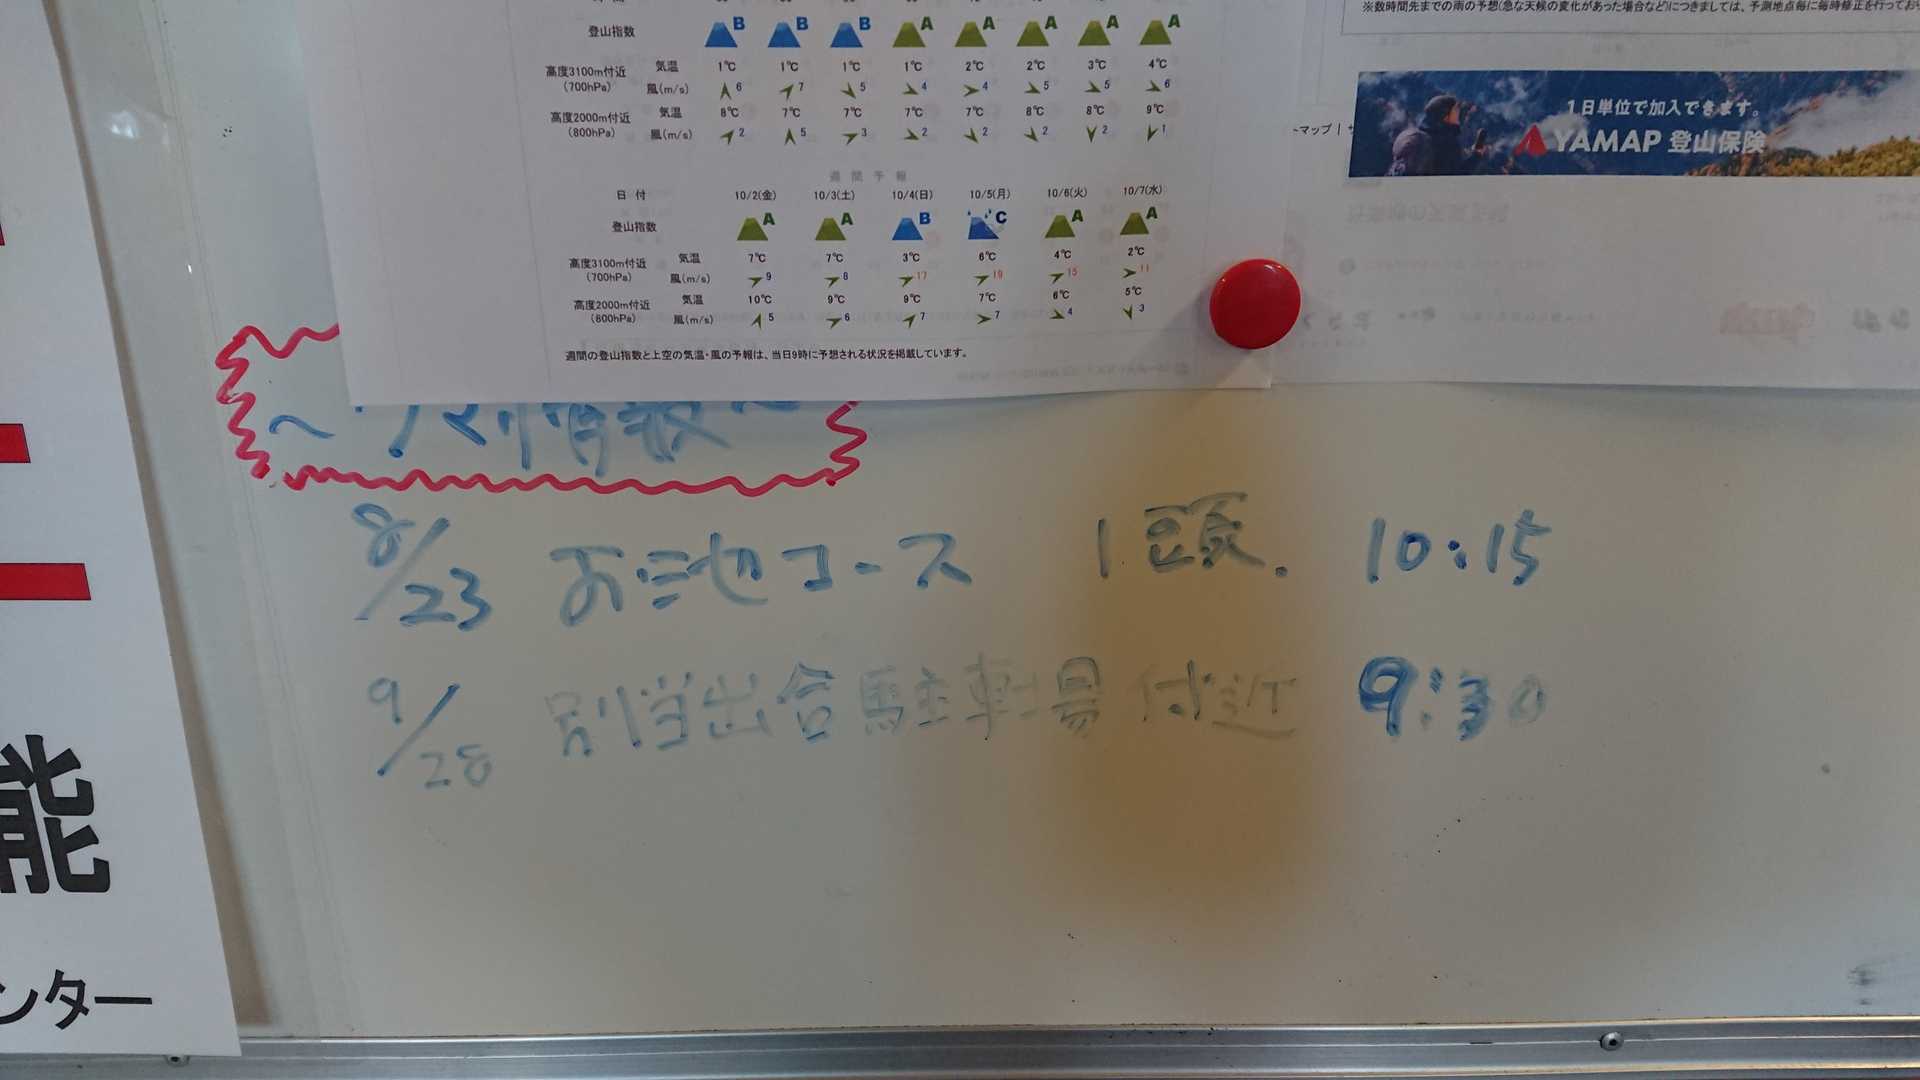 ※数時間先までの雨の予想(急な天候の変化があった場合など)につきましては、予測地点毎に毎時修正を行ってお
登山指数 B B B A A A A A
高度3100m付近 (700hPa) 気温 1℃ 1℃ 1℃ 1℃ 2℃ 2℃ 3℃ 4℃
風(m/s) 6 7 5 4 4 5 5 6
高度2000m付近 (800hPa) 気温 8℃ 7℃ 7℃ 7℃ 7℃ 8℃ 8℃ 9℃
風(m/s) 2 5 3 2 2 2 2 1
週間予報
日付 10/2(金) 10/3(土) 10/4(日) 10/5(月) 10/6(火) 10/7(水)
登山指数 A A B C A A
高度3100m付近 (700hPa) 気温 7℃ 7℃ 3℃ 6℃ 4℃ 2℃
風(m/s) 9 8 17 19 15 11
高度2000m付近 (800hPa) 気温 10℃ 9℃ 9℃ 7℃ 6℃ 5℃
風(m/s) 5 6 7 7 4 3
週間の登山指数と上空の気温・風の予報は、当日9時に予想される状況を掲載しています。
1日単位で加入できます。
YAMAP 登山保険
マップ |
～クマ情報～
8/23 お池コース 1頭. 10:15
9/28 別当出合駐車場付近 9:30
能
ンター